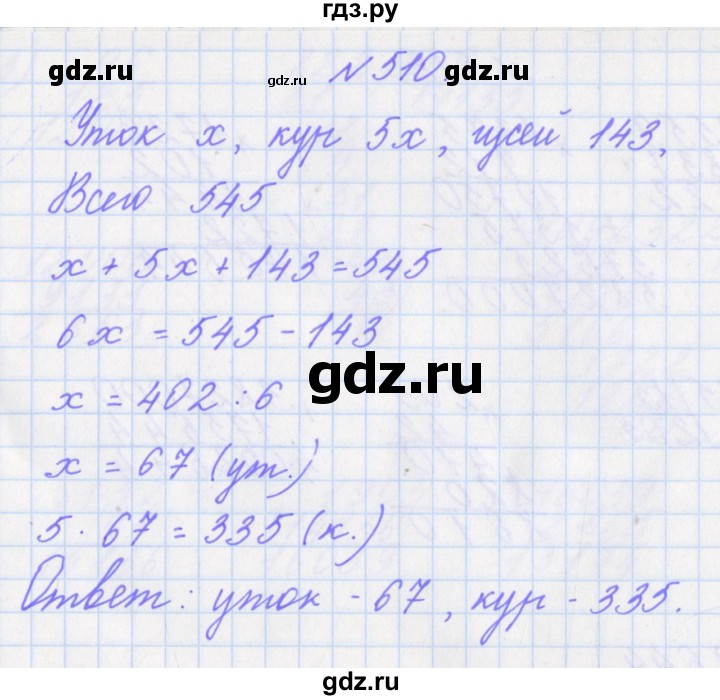 гдз.ру
gdz.ru gdz.ru № 510. gdz.ru
Уток x, кур 5x, гусей 143,
Всего 545
x + 5x + 143 = 545
6x = 545 - 143
gdz.ru
x = 402 : 6
x = 67 (ут.)
5 · 67 = 335 (к.)
Ответ: уток - 67, кур - 335.